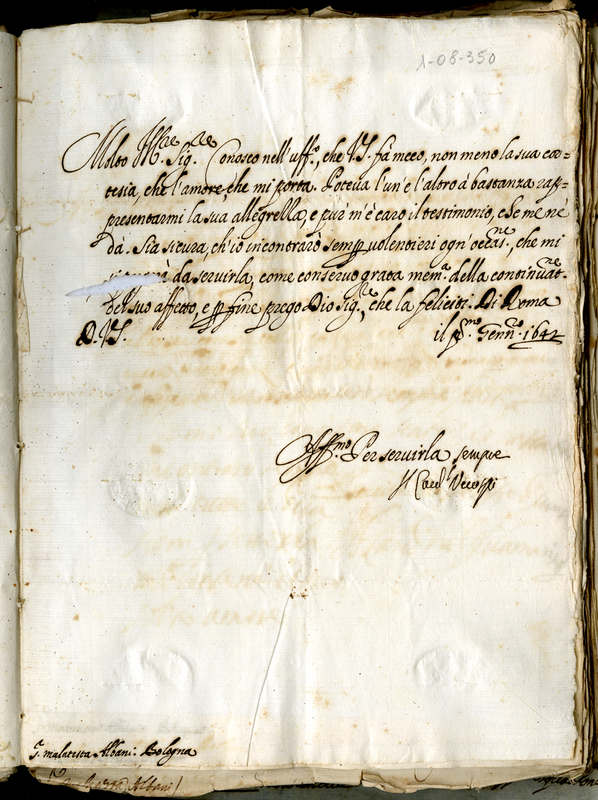 1-08-350
Molto Ill.re Sig.re Conosco nell'uff.o, che V.S. fà meco, non meno la sua cor=
tesia, che l'amore, che mi porta. Poteva l'un' e l'altro à bastanza rap=
presentarmi la sua allegrezza, e pur' m'è caro il testimonio, che me ne
dà. Stia sicura, ch'io incontrarò semp volentieri ogn' occas.ne, che mi
da servirla, come conservo grata mem.a della continuat.ne
del suo affetto, e p fine prego Dio Sig.re, che la feliciti. Di Roma
D.V.S. il p.mo Genn.o 1642
Aff.mo Per servirla sempre
Il Card.l Verospi
S. malatesta Albani. Bologna
Albani